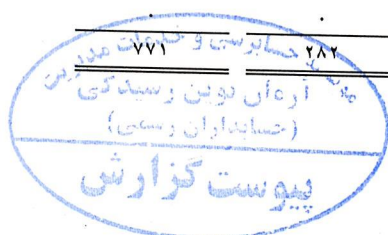 ۲۸۲ ۷۷۱
حسابرسی و خدمات مدیریت
آرمان نوین رسیدگی
(حسابداران رسمی)
پیوست گزارش